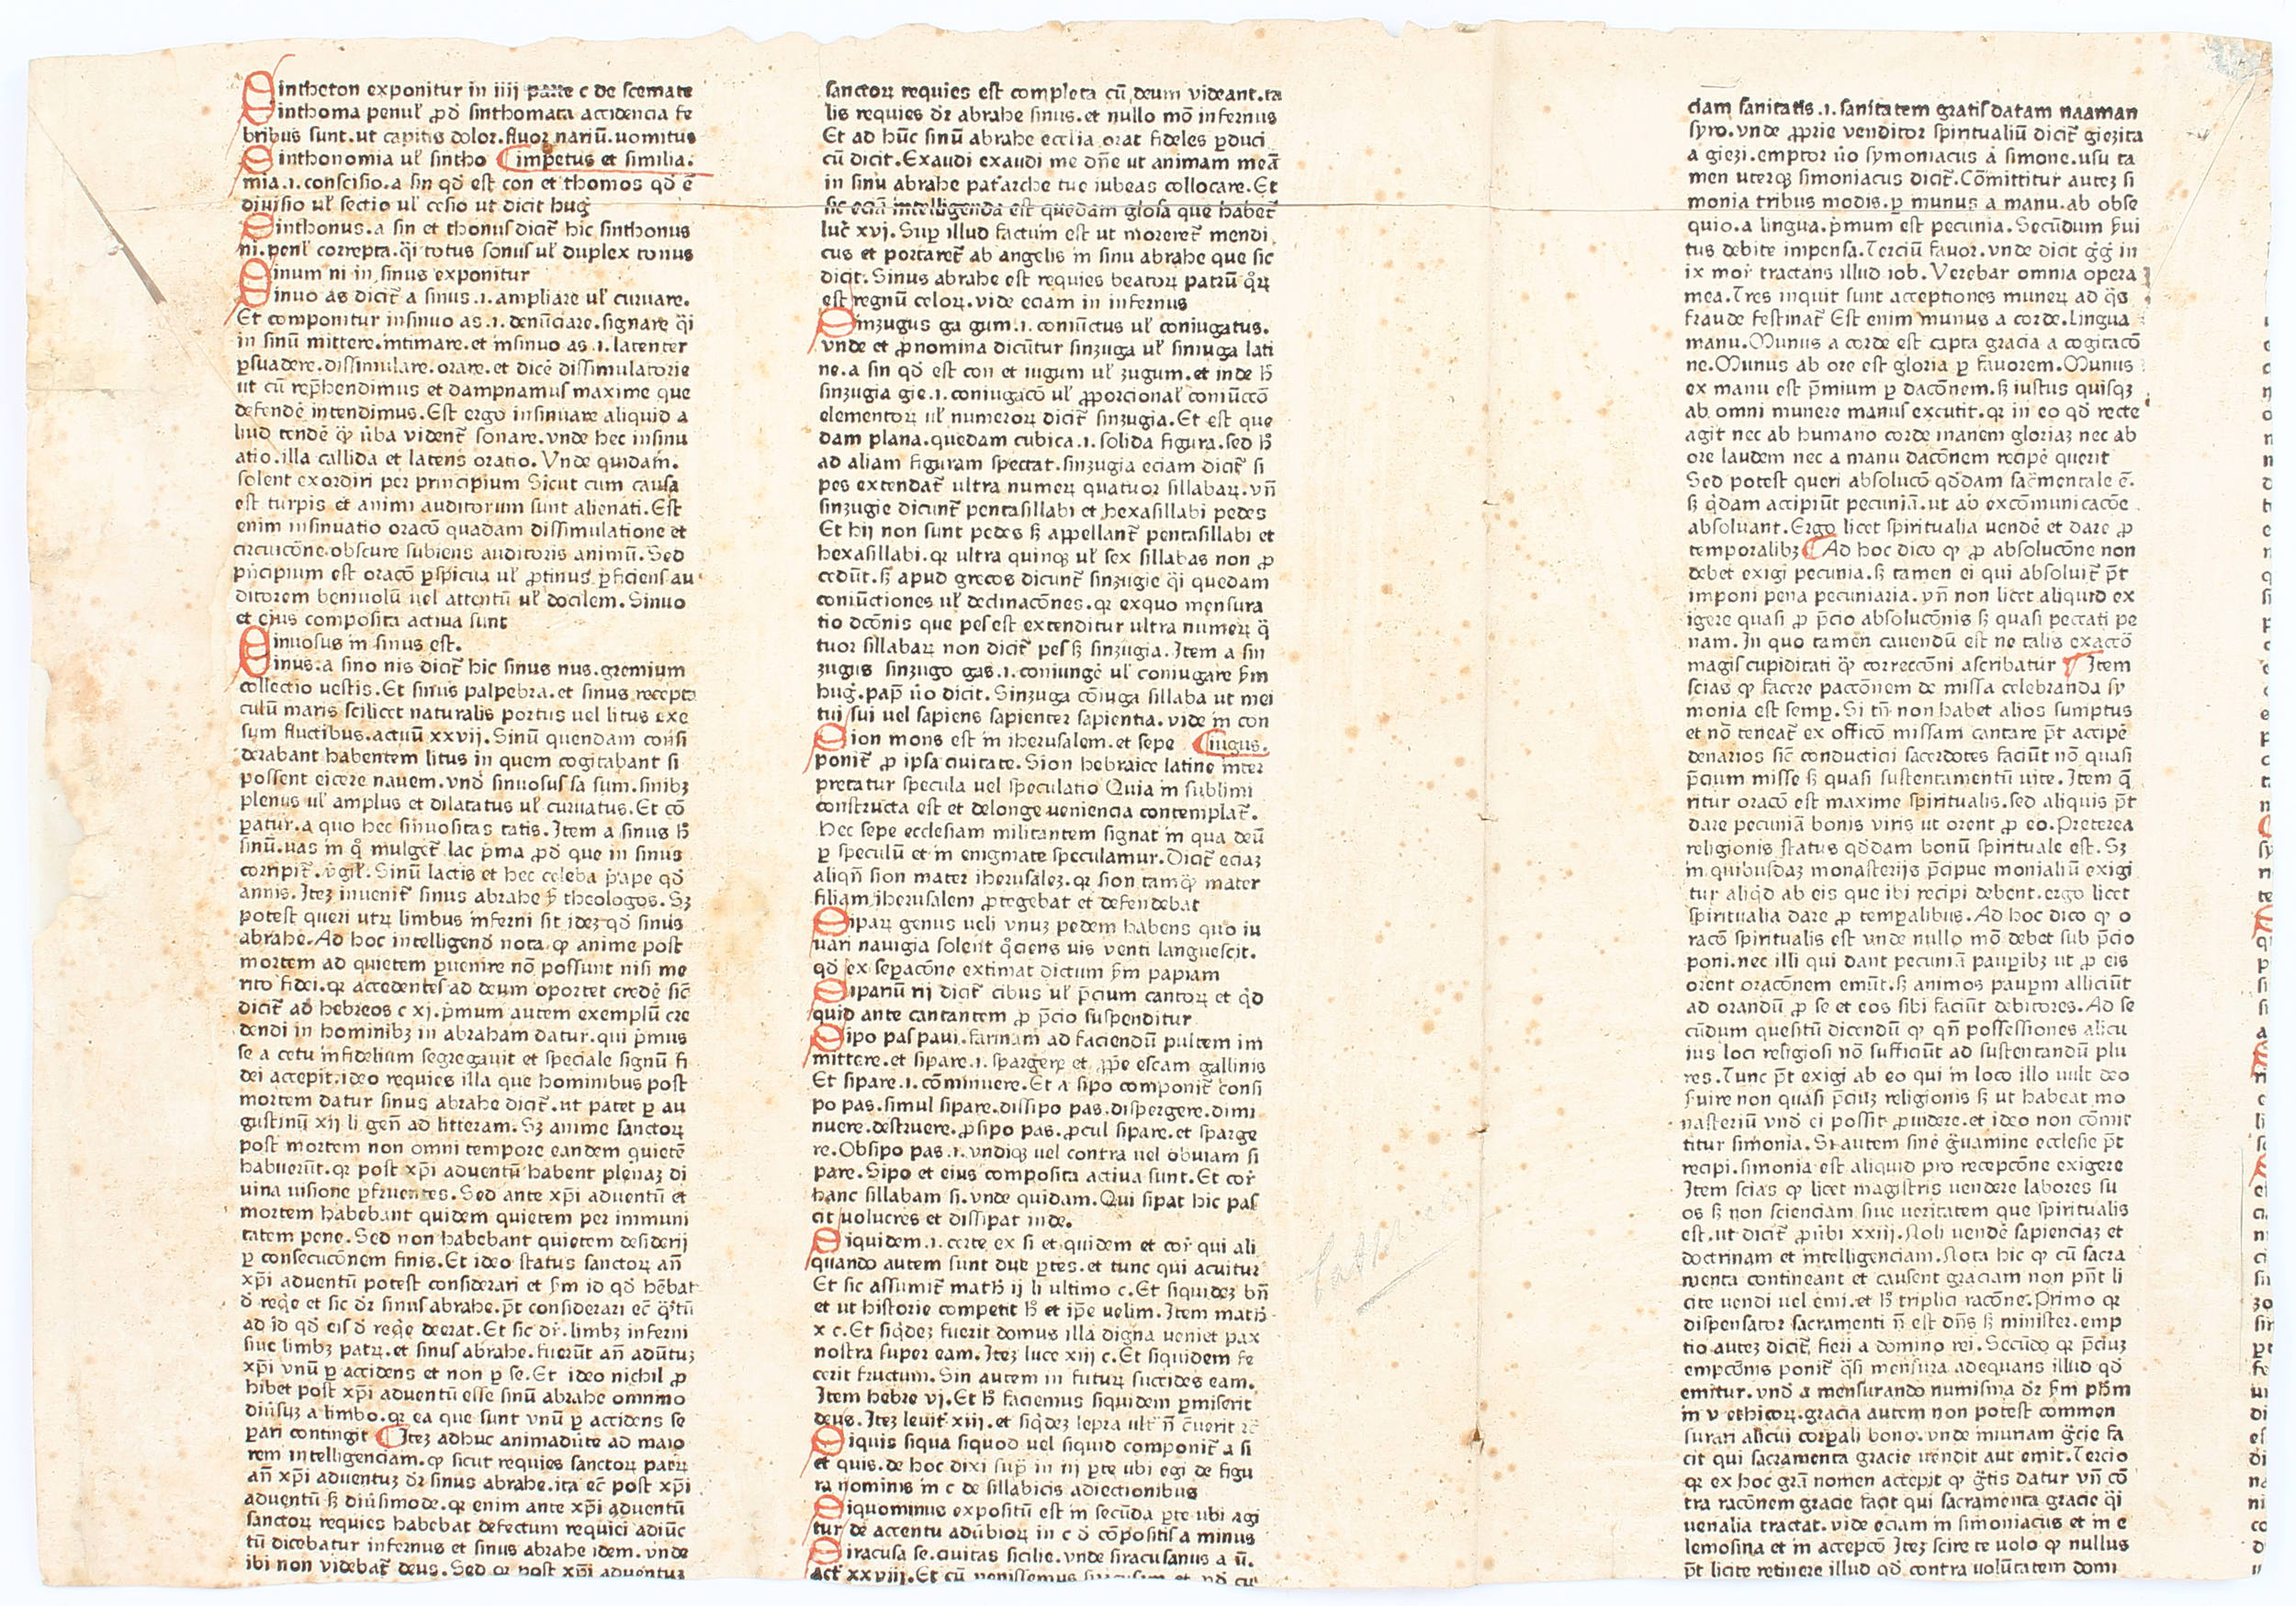 Sintheton exponitur in iiij parte c de scemate
Sinthoma penul̄ ꝓd̄ sinthomata accidencia fe
bribus sunt.ut capitis dolor.fluor nariū.uomitus
Sinthonomia ul̄ sintho ⸿impetus et similia.
mia.i.conscisio.a sin qd̄ est con et thomos qd̄ ē
diuisio ul̄ sectio ul̄ cesio ut dicit huḡ
Sinthonus.a sin et thonus dicit̄ hic sinthonus
ni.penl̄ correpta.q̄i totus sonus ul̄ duplex tonus
Sinum ni in sinus exponitur
Sinuo as dicit̄ a sinus.i.ampliare ul̄ curuare.
Et componitur insinuo as.i.denūciare.signare q̄i
in sinū mittere.intimare.et insinuo as.i.latenter
ꝑsuadere.dissimulare.orare.et dicē dissimulatorie
ut cū rep̄hendimus et dampnamus maxime que
defendē intendimus.Est ergo insinuare aliquid a
liud tendē qƺ ūba vident̄ sonare.vnde hec insinu
atio.illa callida et latens oratio.Vnde quidam.
solent exordiri per principium Sicut cum causa
est turpis et animi auditorum sunt alienati.Est
enim insinuatio oracō quadam dissimulatione et
circuicōne obscure subiens auditoris animū.Sed
pr̄ncipium est oracō ꝑspicua ul̄ ꝓtinus ꝑficiens au
ditorem beniuolū uel attentū ul̄ docilem.Sinuo
et eius composita actiua sunt
Sinuosus in sinus est.
Sinus.a sino nis dicit̄ hic sinus nus.gremium
collectio uestis.Et sinus palpebra.et sinus recepta
culū maris scilicet naturalis portus uel litus exe
sum fluctibus.actuū xxvij.Sinū quendam consi
derabant habentem litus in quem cogitabant si
possent eicere nauem.vnd̄ sinuosus sa sum.sinibꝫ
plenus ul̄ amplus et dilatatus ul̄ curuatus.Et cō
ꝑatur.a quo hec sinuositas tatis.Item a sinus h̄
sinū.uas in q̊ mulget̄ lac p̄ma ꝓd̄ que in sinus
corripit̄.v̄gil̄.Sinū lactis et hec celeba p̄ape qd̄
annis.Iteꝫ inuenit̄ sinus abrahe ꝑ theologos.Sꝫ
potest queri utrꝝ limbus inferni sit ideꝫ qd̄ sinus
abrahe.Ad hoc intelligend̄ nota ꝙ anime post
mortem ad quietem ꝑuenire nō possunt nisi me
rito fidei.qꝛ accedentes ad deum oportet credē sic̄
dicit̄ ad hebreos c xj.p̄mum autem exemplū cre
dendi in hominibꝫ in abraham datur.qui p̄mus
se a cetu infidelium segregauit et speciale signū fi
dei accepit.ideo requies illa que hominibus post
mortem datur sinus abrahe dicit̄.ut patet ꝑ au
gustinū xij li gen̄ ad litteram.Sꝫ anime sanctoꝝ
post mortem non omni tempore eandem quietē
habuerūt.qꝛ post xp̄i aduentū habent plenaꝫ di
uina uisione ꝑfruentes.Sed ante xp̄i aduentū et
mortem habebant quidem quietem per immuni
tatem pene.Sed non habebant quietem desiderij
ꝑ consecucōnem finis.Et ideo status sanctoꝝ an̄
xp̄i aduentū potest considerari et ẜm id qd̄ hēbat
d̄ reqe̊ et sic dr̄ sinus abrahe.pt̄ considerari ec̄ qƺtū
ad id qd̄ eis d̄ reqe̊ deerat.Et sic dr̄.limbꝫ inferni
siue limbꝫ patꝝ.et sinus abrahe.fuerūt an̄ adūtuꝫ
xp̄i vnū ꝑ accidens et non ꝑ se.Et ideo nichil ꝓ
hibet post xp̄i aduentū esse sinū abrahe omnino
diūsuꝫ a limbo.qꝛ ea que sunt vnū ꝑ accidens se
ꝑari contingit ⸿Iteꝫ adhuc animadūte ad maio
rem intelligenciam.ꝙ sicut requies sanctoꝝ patꝝ
an̄ xp̄i aduentuꝫ dr̄ sinus abrahe.ita ec̄ post xp̄i
aduentū ẜ diūsimode.qꝛ enim ante xp̄i aduentū
sanctoꝝ requies habebat defectum requiei adiūc
tū dicebatur infernus et sinus abrahe idem.vnde
ibi non videbat̄ deus.Sed qꝛ post xp̄i aduentuꝫ
sanctoꝝ requies est completa cū deum videant.ta
lis requies dr̄ abrahe sinus.et nullo mō infernus
Et ad hūc sinū abrahe ecclia orat fideles ꝑduci
cū dicit.Exaudi exaudi me dn̄e ut animam meā
in sinu abrahe patr̄arche tue iubeas collocare.Et
sic eciā intelligenda est quedam glosa que habet̄
luc̄ xvj.Suꝑ illud factum est ut moreret̄ mendi
cus et portaret̄ ab angelis in sinu abrahe que sic
dicit.Sinus abrahe est requies beatoꝝ patrū q̊ꝝ
est regnū celoꝝ.vide eciam in infernus
Sinzugus ga gum.i.coniūctus ul̄ coniugatus.
vnde et ꝓnomina dicūtur sinzuga ul̄ siniuga lati
ne.a sin qd̄ est con et iugum ul̄ zugum.et inde h̄
sinzugia gie.i.coniugacō ul̄ ꝓporcional̄ coniūctō
elementoꝝ ul̄ numeroꝝ dicit̄ sinzugia.Et est que
dam plana.quedam cubica.i.solida figura.sed h̄
ad aliam figuram spectat.sinzugia eciam dicit̄ si
pes extendat̄ ultra numeꝝ quatuor sillabaꝝ.vn̄
sinzugie dicunt̄ pentasillabi et hexasillabi pedes
Et hij non sunt pedes ẜ appellant̄ pentasillabi et
hexasillabi.qꝛ ultra quinqꝫ ul̄ sex sillabas non ꝓ
cedūt.ẜ apud grecos dicunt̄ sinzugie q̄i quedam
coniūctiones ul̄ declinacōnes.qꝛ exquo mensura
tio dcōnis que pes est extenditur ultra numeꝝ q̄
tuor sillabaꝝ non dicit̄ pes ẜ sinzugia.Item a sin
zugus sinzugo gas.i.coniungē ul̄ coniugare ẜm
huḡ.pap̄ ūo dicit.Sinzuga cōiuga sillaba ut mei
tui sui uel sapiens sapienter sapientia.vide in con
Sion mons est in iherusalem.et sepe ⸿iugus.
ponit̄ ꝓ ipsa ciuitate.Sion hebraice latine inter
pretatur specula uel speculatio Quia in sublimi
constructa est et delonge ueniencia contemplat̄.
Hec sepe ecclesiam militantem signat in qua deū
ꝑ speculū et in enigmate speculamur.Dicit̄ eciaꝫ
aliqn̄ sion mater iherusaleꝫ.qꝛ sion tamqƺ mater
filiam iherusalem ꝓtegebat et defendebat
Siparꝝ genus ueli vnuꝫ pedem habens quo iu
uari nauigia solent q̊ciens uis venti languescit.
qd̄ ex seꝑacōne extimat dictum ẜm papiam
Sipariū rij dicit̄ cibus ul̄ p̄cium cantoꝝ et q̊d
quid ante cantantem ꝓ p̄cio suspenditur
Sipo pas paui.farinam ad faciendū pultem im
mittere.et sipare.i.spargere et ꝓpe escam gallinis
Et sipare.i.cōminuere.Et a sipo componit̄ consi
po pas.simul sipare.dissipo pas.dispergere.dimi
nuere.destruere.ꝓsipo pas.ꝓcul sipare.et sparge
re.Obsipo pas.i.vndiqꝫ uel contra uel obuiam si
pare.Sipo et eius composita actiua sunt.Et cor̄
hanc sillabam si.vnde quidam.Qui sipat hic pas
cit uolucres et dissipat inde.
Siquidem.i.certe ex si et quidem et cor̄ qui ali
quando autem sunt due ꝑtes.et tunc qui acuitur
Et sic assumit̄ math̄ ij li ultimo c.Et siquideꝫ bn̄
et ut historie competit h̄ et ip̄e uelim.Item math̄
x c.Et siq̊deꝫ fuerit domus illa digna ueniet pax
nostra super eam.Iteꝫ luce xiij c.Et siquidem fe
cerit fructum.Sin autem in futuꝝ succides eam.
Item hebre vj.Et h̄ faciemus siquidem ꝑmiserit
deus.Iteꝫ leuit̄ xiij.et siq̊deꝫ lepra
Siquis siqua siquod uel siquid componit̄ a si
et quis.de hoc dixi sup̄ in iij ꝑte ubi egi de figu
ra nominis in c de sillabicis adiectionibus
Siquominus expositū est in secūda ꝑte ubi agi
tur de accentu adūbioꝝ in c d̄ cōpositis a minus
Siracusa se.ciuitas sicilie.vnde siracusanus a ū.
act̄ xxviij.Et cū venissemus
ciam sanitatis.i.sanitatem gratis datam naaman
syro.vnde ꝓprie venditor spiritualiū dicit̄ giezita
a giezi.emptor ūo symoniacus a simone.usu ta
men uterqꝫ simoniacus dicit̄.Cōmittitur auteꝫ si
monia tribus modis.ꝑ munus a manu.ab obse
quio.a lingua.p̄mum est pecunia.Secūdum ẜui
tus debite impensa.Terciū fauor.vnde dicit g̊g̊ in
ix mor̄ tractans illud iob.Verebar omnia opera
mea.Tres inquit sunt acceptiones muneꝝ ad q̊s
fraude festinat̄ Est enim munus a corde.lingua
manu.Munus a corde est capta gracia a cogitacō
ne.Munus ab ore est gloria ꝑ fauorem.Munus
ex manu est p̄mium ꝑ dacōnem.ẜ iustus quisqꝫ
ab omni munere manus excutit.qꝛ in eo qd̄ recte
agit nec ab humano corde inanem gloriaꝫ nec ab
ore laudem nec a manu dacōnem recipē querit
Sed potest queri absolucō qd̄dam sac̄mentale ē.
ẜ q̊dam accipiūt pecuniā.ut ab excōmunicacōe
absoluant.Ergo licet spiritualia uendē et dare ꝓ
temporalibꝫ ⸿Ad hoc dico ꝙ ꝓ absolucōne non
debet exigi pecunia.ẜ tamen ei qui absoluit̄ pt̄
imponi pena pecuniaria.vn̄ non licet aliquid ex
igere quasi ꝓ p̄cio absolucōnis ẜ quasi peccati pe
nam.In quo tamen cauendū est ne talis exactō
magis cupiditati qƺ correccōni ascribatur ⸿Item
scias ꝙ facere paccōnem de missa celebranda sy
monia est semꝑ.Si tn̄ non habet alios sumptus
et nō teneat̄ ex officō missam cantare pt̄ accipē
denarios sic̄ conducticij sacerdotes faciūt nō quasi
p̄cium misse ẜ quasi sustentamentū uite.Item q̄
ritur oracō est maxime spiritualis.sed aliquis pt̄
dare pecuniā bonis viris ut orent ꝓ eo.Preterea
religionis status qd̄dam bonū spirituale est.Sꝫ
in quibusdaꝫ monasterijs p̄cipue monialiū exigi
tur aliq̊d ab eis que ibi recipi debent.ergo licet
spiritualia dare ꝓ temꝑalibus.Ad hoc dico ꝙ o
racō spiritualis est vnde nullo mō debet sub p̄cio
poni.nec illi qui dant pecuniā pauꝑibꝫ ut ꝓ eis
orent oracōnem emūt.ẜ animos pauꝑum alliciūt
ad orandū ꝓ se et eos sibi faciūt debitores.Ad se
cūdum quesitū dicendū ꝙ qn̄ possessiones alicu
ius loci religiosi nō sufficiūt ad sustentandū plu
res.Tunc pt̄ exigi ab eo qui in loco illo uult deo
ẜuire non quasi p̄ciuꝫ religionis ẜ ut habeat mo
nasteriū vnd̄ ei possit ꝓuidere.et ideo non cōmit
titur simonia.Si autem sine g̊uamine ecclesie pt̄
recipi.simonia est aliquid pro recepcōne exigere
Item scias ꝙ licet magistris uendere labores su
os ẜ non scienciam siue ueritatem que spiritualis
est.ut dicit̄ ꝓūbi xxiij.Noli uendē sapienciaꝫ et
doctrinam et intelligenciam.Nota hic ꝙ cū sacra
menta contineant et causent graciam non pn̄t li
cite uendi uel emi.et h̄ triplici racōne.Primo qꝛ
dispensator sacramenti n̄ est dn̄s ẜ minister.emp
tio auteꝫ dicit̄ fieri a domino rei.Secūdo qꝛ p̄ciuꝫ
empcōnis ponit̄ q̄si mensura adequans illud qd̄
emitur.vnd̄ a mensurando numisma dr̄ ẜm ph̄m
in v ethicoꝝ.gracia autem non potest commen
surari alicui corꝑali bono.vnde iniuriam g̊cie fa
cit qui sacramenta gracie uendit aut emit.Tercio
qꝛ ex hoc grā nomen accepit ꝙ g̊tis datur vn̄ cō
tra racōnem gracie facit qui sacramenta gracie q̄i
uenalia tractat.vide eciam in simoniacus et in e
lemosina et in accepcō Iteꝫ scire te uolo ꝙ nullus
pt̄ licite retinere illud qd̄ contra uolūtatem domi